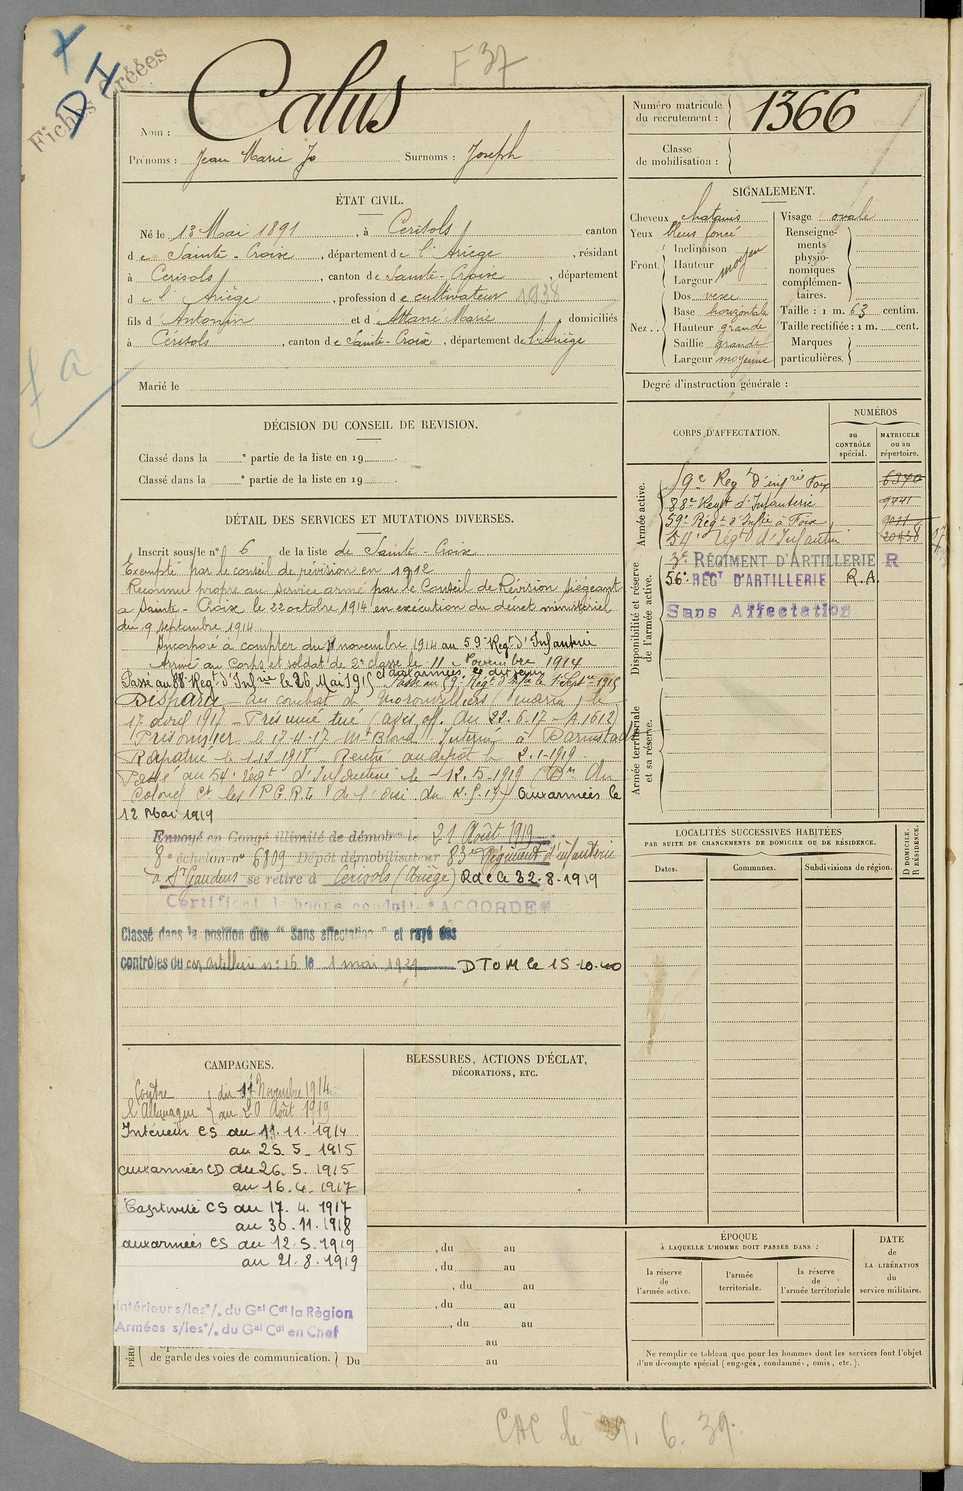 Fiches Créées
D I
F 37
Nom : Calus
Prénoms : Jean Marie Jo Surnoms : Joseph
Numéro matricule du recrutement : 1366
Classe de mobilisation :
ÉTAT CIVIL.
Né le 13 Mai 1891, à Cerisols, canton
de Sainte-Croix, département de l'Ariège, résidant
à Cerisols, canton de Sainte-Croix, département
de l'Ariège, profession de cultivateur 1938
fils d'Antonin et d'Attané Marie domiciliés
à Cérisols, canton de Sainte-Croix, département de l'Ariège
Marié le
SIGNALEMENT.
Cheveux chatains
Yeux bleus foncé
Front. Inclinaison
Hauteur moyen
Largeur
Nez .. Dos vexe
Base horizontale
Hauteur grande
Saillie grande
Largeur moyenne
Visage ovale
Renseignements physionomiques complémentaires.
Taille : 1 m. 63 centim.
Taille rectifiée : 1 m. cent.
Marques particulières.
Degré d'instruction générale :
DÉCISION DU CONSEIL DE REVISION.
Classé dans la e partie de la liste en 19 .
Classé dans la e partie de la liste en 19 .
DÉTAIL DES SERVICES ET MUTATIONS DIVERSES.
Inscrit sous le n° 6 de la liste de Sainte-Croix
Exempté par le conseil de révision en 1912
Reconnu propre au service armé par le Conseil de Révision siégeant
à Sainte-Croix le 22 octobre 1914 en exécution du décret ministériel
du 9 septembre 1914
Incorporé à compter du 11 novembre 1914 au 59e Regt d'Infanterie
Arrivé au Corps et soldat de 2e classe le 11 Novembre 1914
et aux armées le dit jour
Passé au 88e Regt d'Infrie le 26 Mai 1915 Passé au 59e Régt d'Infie le 1er Septre 1915
Disparu au combat de Moronvilliers (Marne) le
17 avril 1917 - Présumé tué (avis off. du 22.6.17 - A.1612)
Prisonnier le 17-4-17 Mt Blond Interné à Darmstadt
Rapatrié le 1.12.1918 Rentré au dépôt le 2-1-1919
Passé au 54e regt d'Infanterie le 12.5.1919
Colonel Ct les P.G.R.L de l'Oise aux armées le
12 Mai 1919
Envoyé en Congé illimité de démobon le 21 Août 1919
8e échelon n° 6309 Dépôt démobilisateur 83e Régiment d'infanterie
à St Gaudens se retire à Cerisols (Ariège) Rdc le 22.8.1919
Certificat de bonne conduite *ACCORDE*
Classé dans la position dite "Sans affectation" et rayé des
contrôles du artillerie n° 16 le 1 mai 1929 DTOM le 15-10-40
CORPS D'AFFECTATION.
NUMÉROS
au CONTRÔLE spécial.
MATRICULE ou au répertoire.
Armée active.
59e Regt d'infrie Foix
88e Regt d'Infanterie
59e Régt d'Infie à Foix
54e régt d'Infanterie
Disponibilité et réserve de l'armée active.
3e RÉGIMENT D'ARTILLERIE R
56e REGT D'ARTILLERIE R.A.
Sans Affectation
Armée territoriale et sa réserve.
LOCALITÉS SUCCESSIVES HABITÉES
PAR SUITE DE CHANGEMENTS DE DOMICILE OU DE RÉSIDENCE.
Dates.
Communes.
Subdivisions de région.
D DOMICILE.
R RÉSIDENCE.
CAMPAGNES.
Contre l'Allemagne du 11 Novembre 1914
au 20 Août 1919
Intérieur CS du 11.11.1914
au 25.5.1915
aux armées CD du 26.5.1915
au 16.4.1917
Captivité CS du 17.4.1917
au 30.11.1918
aux armées CS du 12.5.1919
au 21.8.1919
Intérieur s/les °/. du Gal Cdt la Région
Armées s/les °/. du Gal Cdt en Chef
BLESSURES, ACTIONS D'ÉCLAT,
DÉCORATIONS, ETC.
, du au
, du au
, du au
, du au
, du au
au
de garde des voies de communication. Du au
ÉPOQUE
À LAQUELLE L'HOMME DOIT PASSER DANS :
la réserve de l'armée active.
l'armée territoriale.
la réserve de l'armée territoriale
DATE de LA LIBÉRATION du service militaire.
Ne remplir ce tableau que pour les hommes dont les services font l'objet
d'un décompte spécial (engagés, condamnés, omis, etc.).
CAC le 6.39.